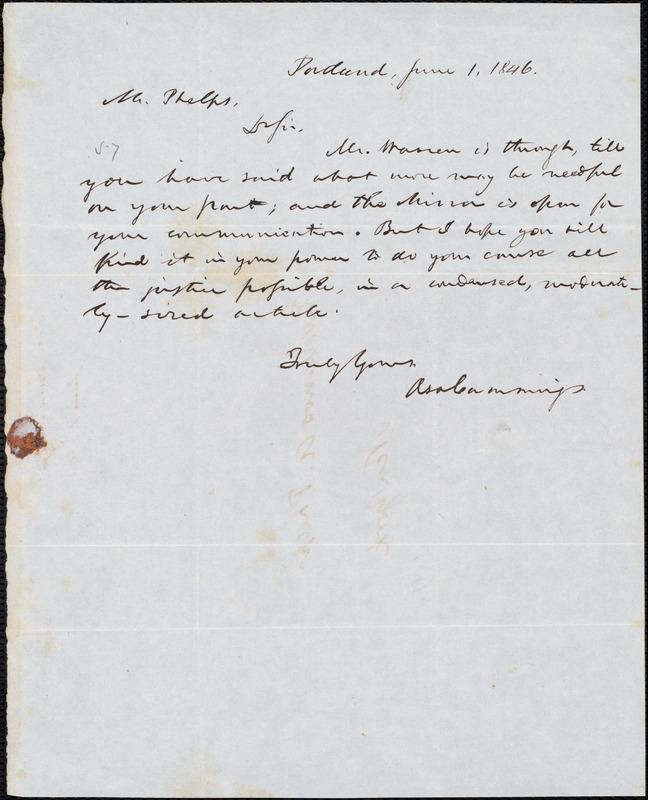 Portland, June 1, 1846.
Mr. Phelps,
Dr Sir,
Mr. Warren is through, till
you have said what more may be needful
on your part; and the Mirror is open for
your communication. But I hope you will
find it in your power to do your cause all
the justice possible, in a condensed, moderate-
ly-sized article.
Truly Yours
Asa Cummings